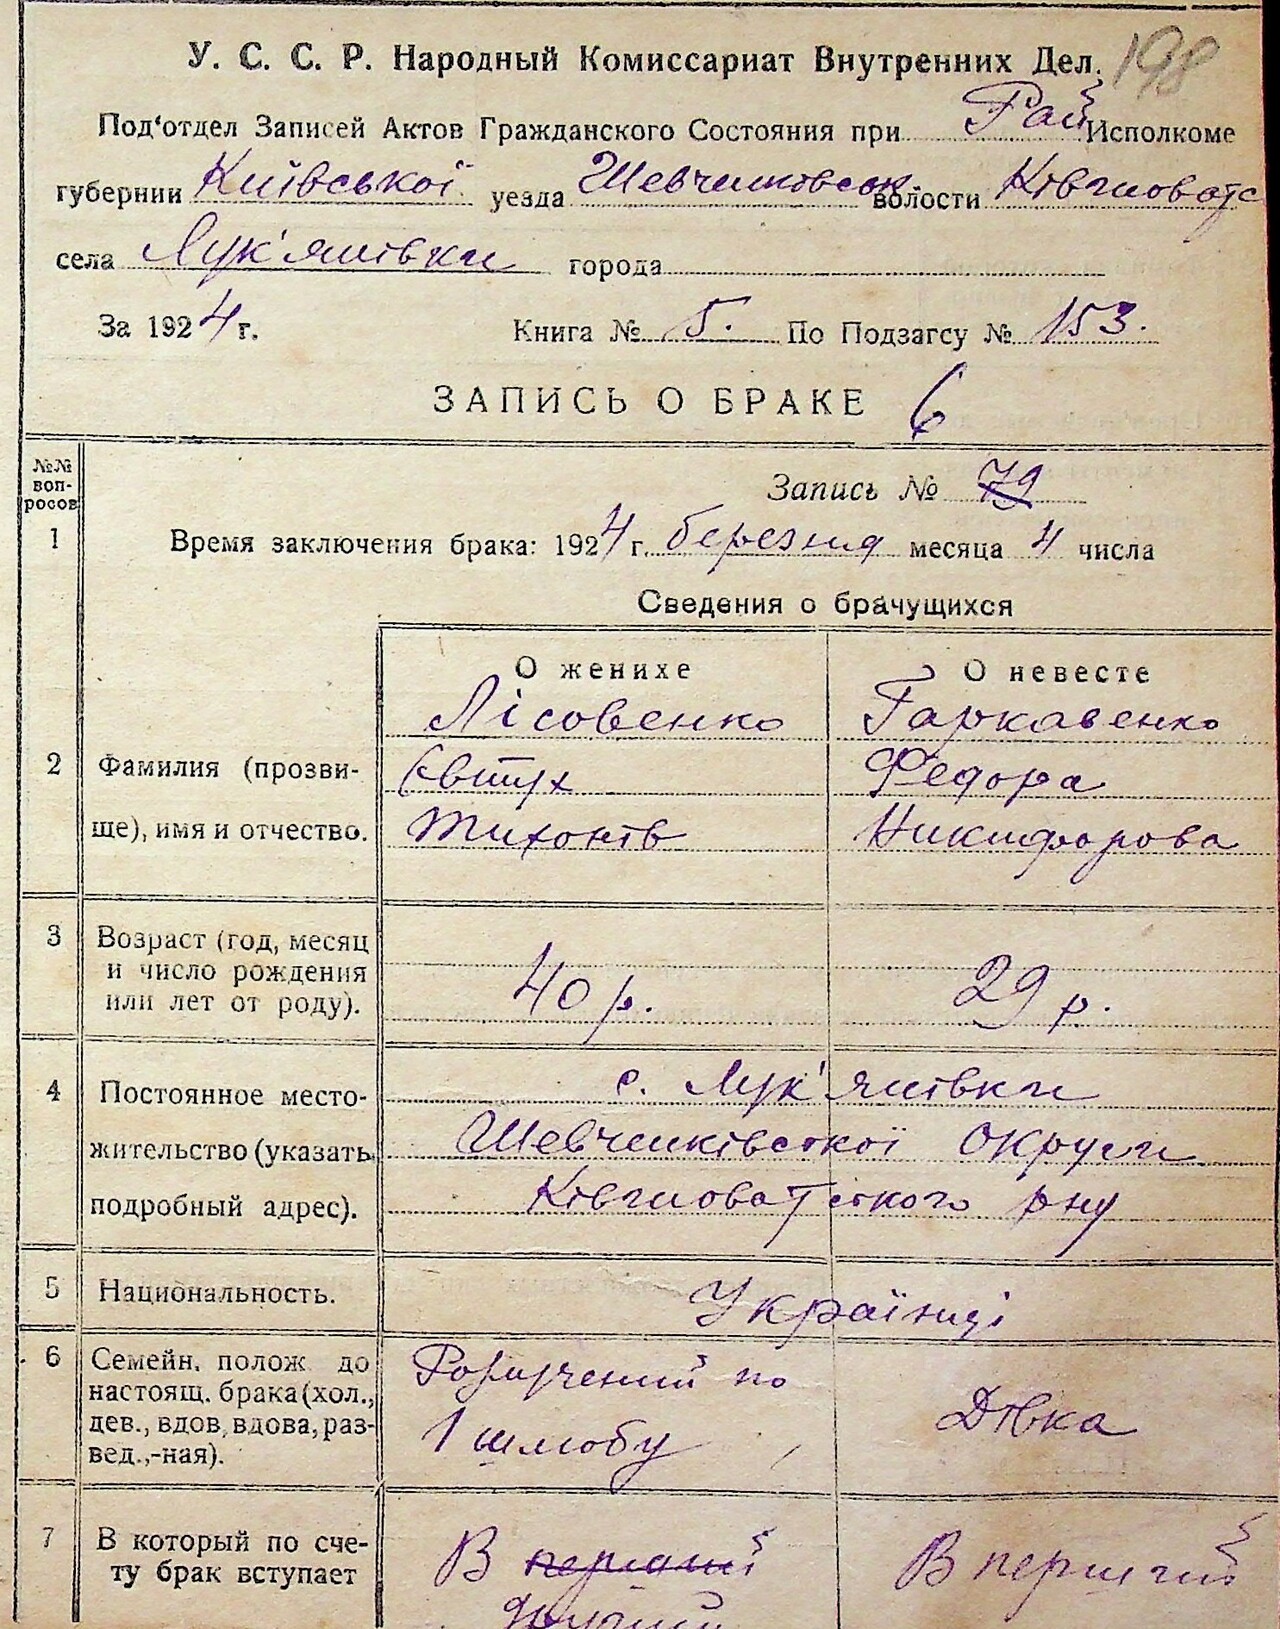 У. С. С. Р. Народный Комиссариат Внутренних Дел. 198
Под'отдел Записей Актов Гражданского Состояния при Рай Исполкоме
губернии Київської уезда Шевченковськ. волости Ківшоватс
села Лук'янівки города
За 1924 г. Книга № 5. По Подзагсу № 153.
ЗАПИСЬ О БРАКЕ 6
№№ воп- росов
Запись № 79
1 Время заключения брака: 1924 г. березня месяца 4 числа
Сведения о брачущихся
О женихе О невесте
Лісовенко Гаркавенко
2 Фамилия (прозви- Євтух Федора
ще), имя и отчество. Тихонів Никифорова
3 Возраст (год, месяц
и число рождения 40 р. 29 р.
или лет от роду).
4 Постоянное место- с. Лук'янівки
жительство (указать Шевченківської округи
подробный адрес). Ківшоватського рну
5 Национальность. Українці
6 Семейн. полож до Розлучений по
настоящ. брака (хол., Дівка
дев., вдов, вдова, раз- 1 шлюбу
вед.,-ная).
7 В который по сче- В перший В перший
ту брак вступает другий